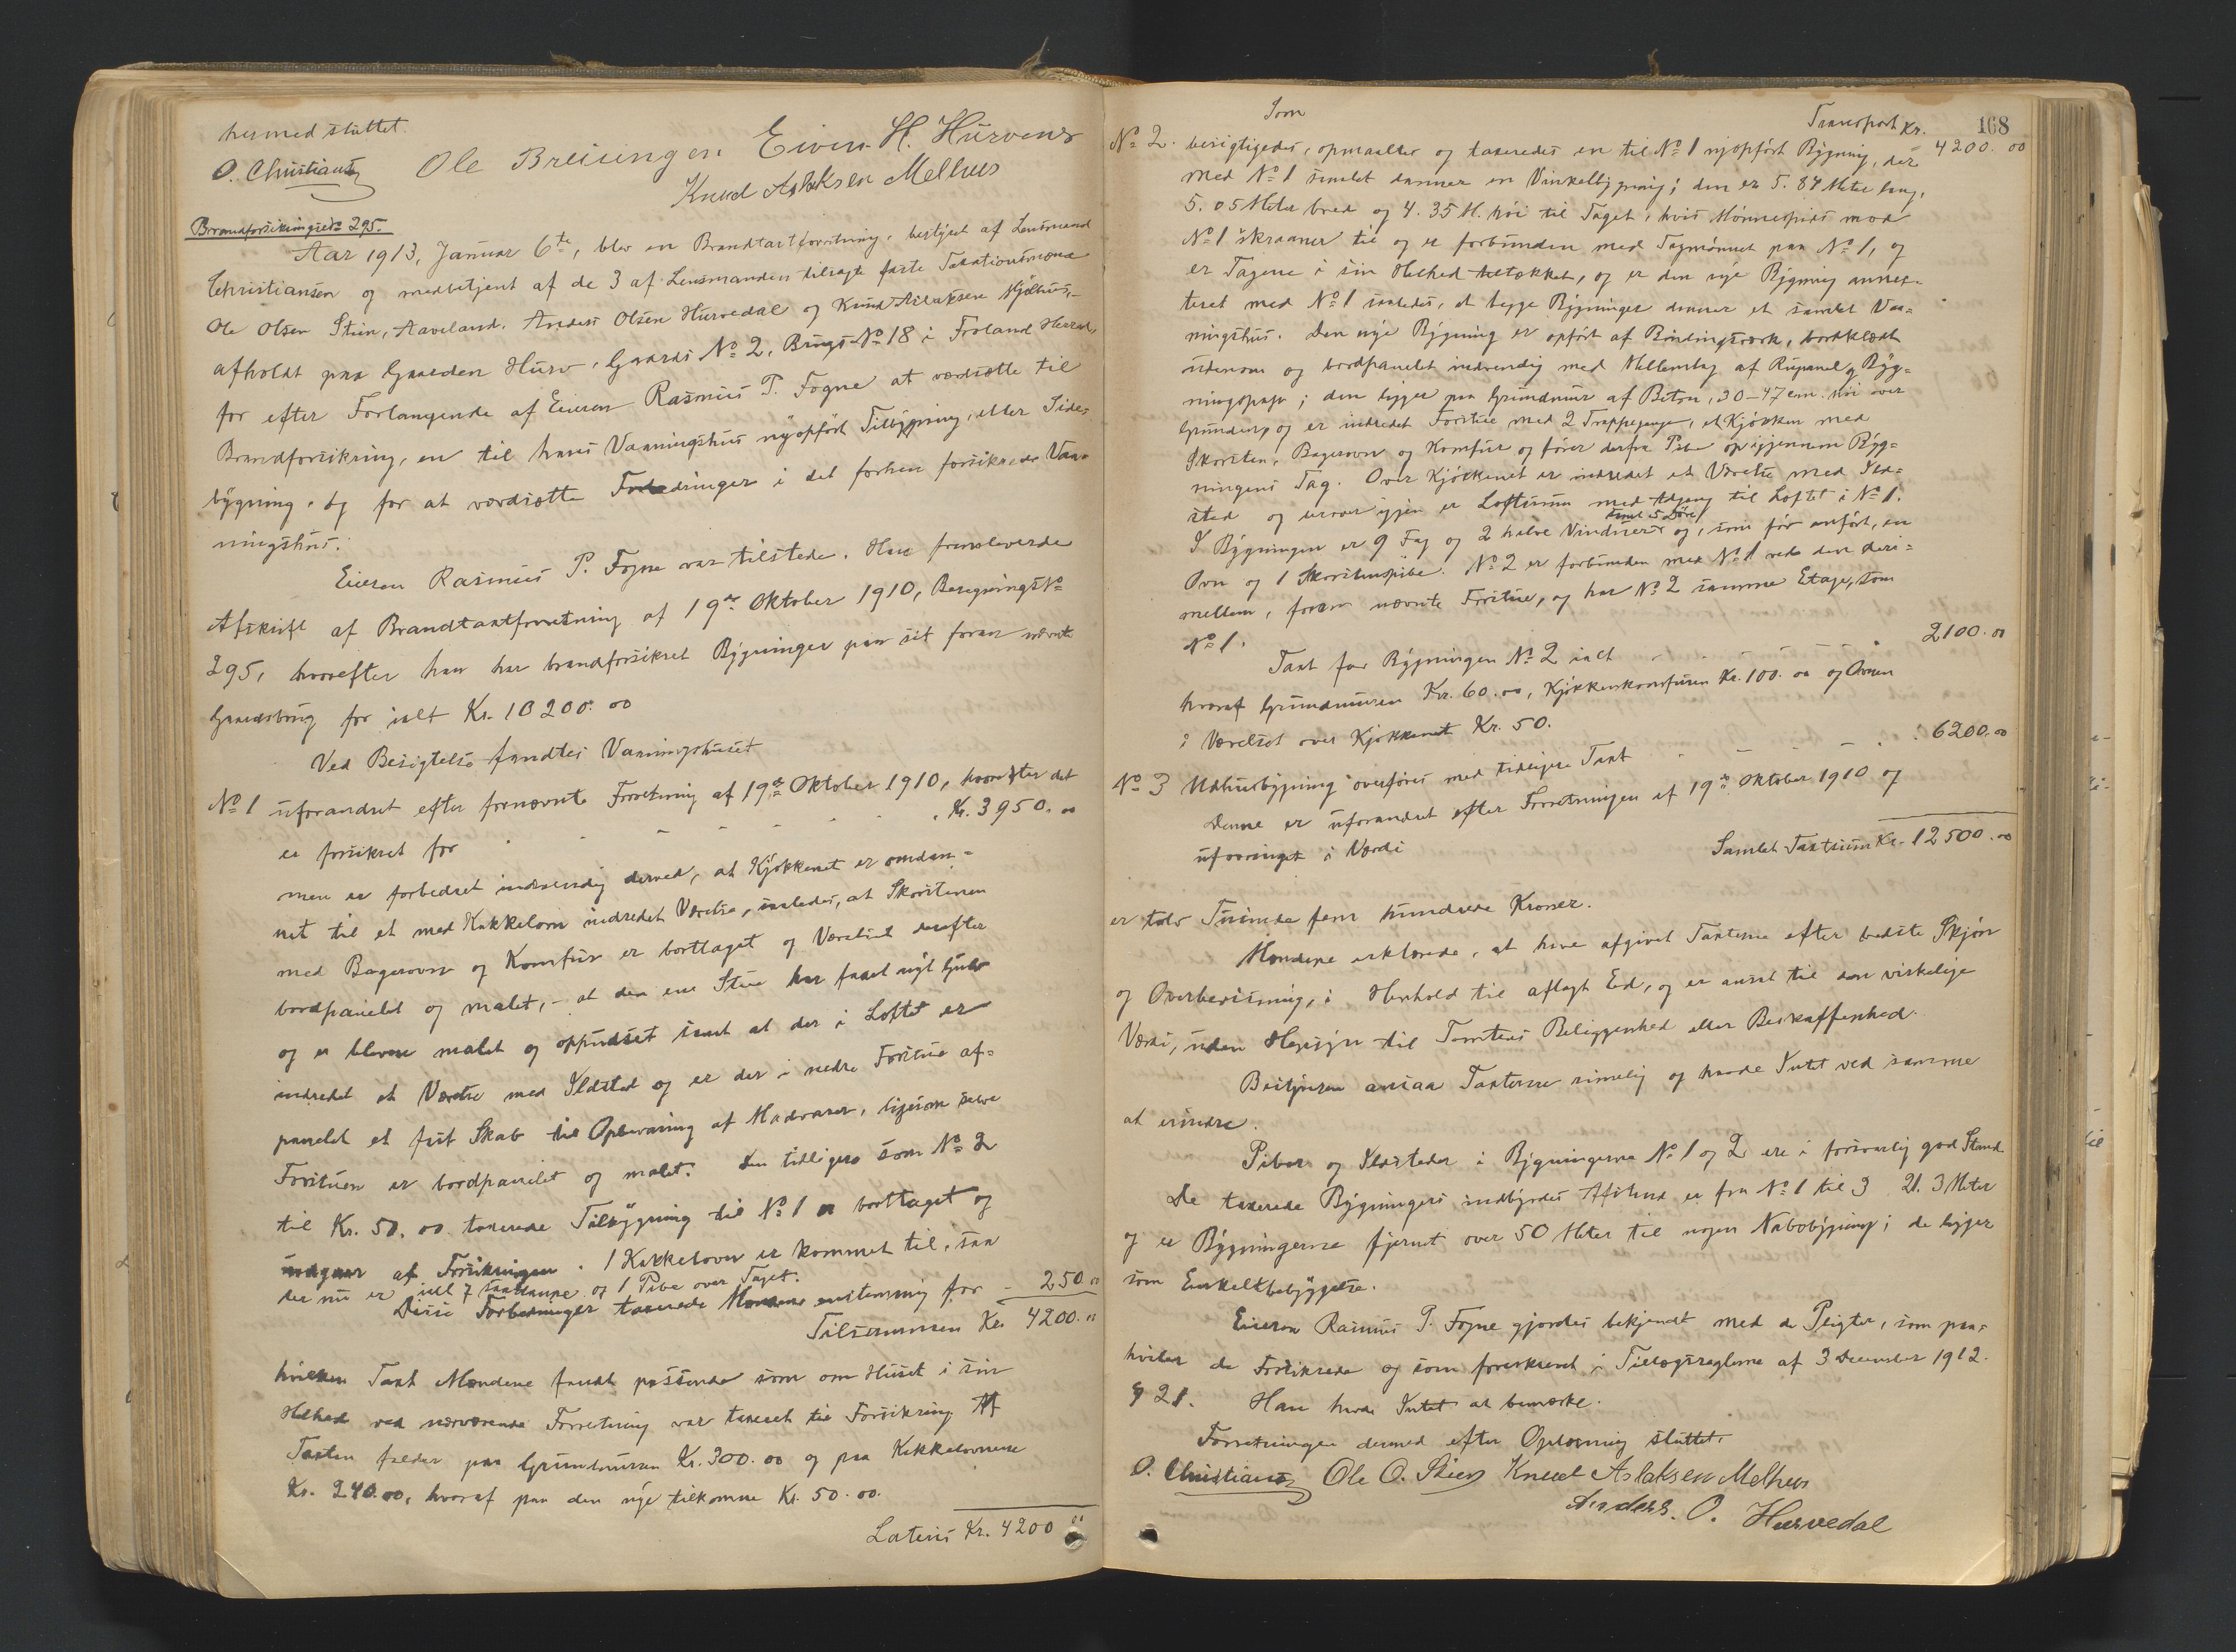 hermed sluttet.
O. Christiansen Ole Breiungen Eivin H. Hurvens
Knud Aslaksen Melhus
Brandforsikringsede 295.
Aar 1913, Januar 6te, blev en Brandtaxtforretning, bestyret af Lensmand
Christiansen og medbetjent af de 3 af Lensmanden tilsagte faste Taxationsmænd
Ole Olsen Stien, Aaveland, Anders Olsen Hurvedal og Knud Aslaksen Mjølhus,
afholdt paa Gaarden Hurv, Gaards No 2, Brugs No 18 i Froland Herred
for efter Forlangende af Eieren Rasmus P. Fogne at værdsætte til
Brandforsikring, en til hans Vaaningshus nyopført Tilbygning, eller Side-
bygning, og for at værdsætte Forbedringer i det forhen forsikrede Vaa-
ningshus.
Eieren Rasmus P. Fogne var tilstede. Han fremleverede
Afskrift af Brandtaxtforretning af 19de Oktober 1910, Beregnings No
295, hvorefter han har brandforsikret Bygninger paa sit foran nævnte
Gaardsbrug for ialt Kr. 10200.00
Ved Besigtelse fandtes Vaaningshuset
No 1 uforandret efter fornævnte Forretning af 19de Oktober 1910, hvorefter det
er forsikret for Kr. 3950.00
men er forbedret indvendig derved, at Kjøkkenet er omdan-
net til et med Kakkelovn indredet Værelse, saaledes, at Skorstenen
med Bagerovn og Komfur er borttaget og Værelset derefter
bordpanelet og malet, - at den ene Stue har faaet nyt Gulv
og er bleven malet og oppudset samt at der i Loftet er
indredet et Værelse med Ildsted og er der i nedre Forstue af-
panelet et fast Skab til Opbevaring af Madvarer, ligesom selve
Forstuen er bordpanelet og malet. Den tidligere som No 2
til Kr. 50.00 taxerede Tilbygning til No 1 er borttaget og
udgaar af Forsikringen. 1 Kakkelovn er kommet til, saa
der nu er ialt 7 saadanne og 1 Pibe over Taget.
Disse Forbedringer taxerede Mændene enstemmig for - 250.00
Tilsammen Kr. 4200.00
hvilken Taxt Mændene fandt passende som om Huset i sin
Helhed ved nærværende Forretning var taxeret til Forsikring. Af
Taxten falder paa Grundmuren Kr. 300.00 og paa Kakkelovnene
Kr. 240.00, hvoraf paa den nye tilkomne Kr. 50.00.
Lateris Kr. 4200.00
168
Som Transport Kr. 4200.00
No 2. besigtigedes, opmaaltes og taxeredes en til No 1 nyopført Bygning, der
med No 1 samlet danner en Vinkelbygning; den er 5.84 Meter lang,
5.05 Meter bred og 4.35 M. høi til Taget, hvis Mønnespids mod
No 1 skraaner til og er forbunden med Tagmønnet paa No 1, og
er Tagene i sin Helhed teltækket, og er den nye Bygning annek-
teret med No 1 saaledes, at begge Bygninger danner et samlet Vaa-
ningshus. Den nye Bygning er opført af Bindingsværk, bordklædt
udenom og bordpanelet indvendig med Mellemlag af Rupanel og Byg-
ningspap; den ligger paa Grundmur af Beton, 30-47 cm. høi over
Grunden, og er indredet Forstue med 2 Trappegange, et Kjøkken med
Skorsten, Bagerovn og Komfur og fører derfra Pibe opigjennem Byg-
ningens Tag. Over Kjøkkenet er indredet et Værelse med Ild-
sted og ovenover igjen er Loftsrum med Adgang til Loftet i No 1.
I Bygningen er 9 Fag og 2 halve Vinduer samt 5 Døre og, som før anført, en
Ovn og 1 Skorstenspibe. No 2 er forbunden med No 1 ved den deri-
mellem, foran nævnte Forstue, og har No 2 samme Etage, som
No 1.
Taxt for Bygningen No 2 ialt 2100.00
hvoraf Grundmuren Kr. 60.00, Kjøkkenkomfuren Kr. 100.00 og Ovnen
i Værelset over Kjøkkenet Kr. 50.
No 3 Udhusbygning overføres med tidligere Taxt 6200.00
Denne er uforandret efter Forretningen af 19de Oktober 1910 og
uforringet i Værdi
Samlet Taxtsum Kr. 12500.00
er tolv Tusinde fem hundrede Kroner.
Mændene erklærede, at have afgivet Taxterne efter bedste Skjøn
og Overbevisning, i Henhold til aflagt Eed, og er anset til den virkelige
Værdi, uden Hensyn til Tomtens Beliggenhed eller Beskaffenhed.
Bestyreren ansaa Taxterne rimelig og havde Intet ved samme
at erindre.
Piber og Ildsteder i Bygningerne No 1 og 2 ere i forsvarlig god Stand.
De taxerede Bygningers indbyrdes Afstand er fra No 1 til 3 21.3 Meter
og er Bygningerne fjernet over 50 Meter til nogen Nabobygning; de ligger
som Enkeltbebyggelse.
Eieren Rasmus P. Fogne gjordes bekjendt med de Pligter, som paa-
hviler de Forsikrede og som foreskrevet i Tillægsreglerne af 3 December 1912.
§ 21. Han havde Intet at bemærke.
Forretningen dermed efter Oplæsning sluttet.
O. Christiansen Ole O. Stien Knud Aslaksen Melhus
Anders. O. Hurvedal